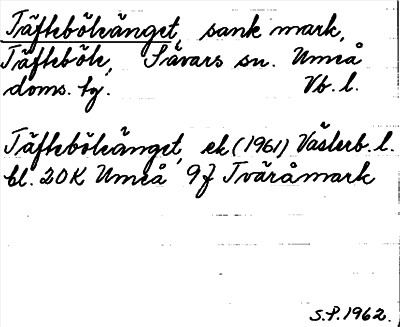 Täfteböleänget, sank mark,
Täfteböle, Sävars sn. Umeå
doms. tg. Vb. l.
Täfteböleänget, ek (1961) Västerb. l.
bl. 20K Umeå 9f Tväråmark
S.P. 1962.